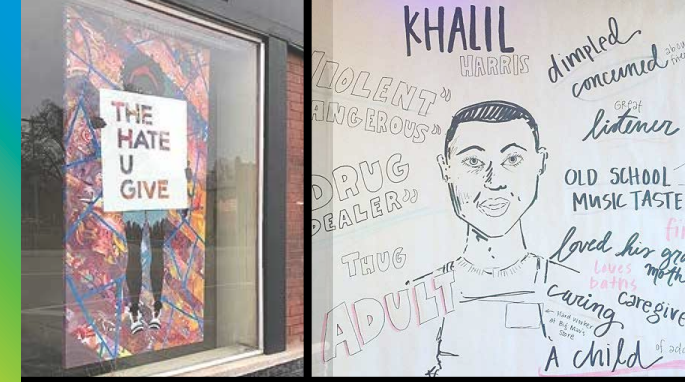 THE
HATE
U
GIVE
KHALIL
HARRIS
VIOLENT"
DANGEROUS"
DRUG
DEALER"
THUG
ADULT
dimpled
concerned
GREAT
listener
OLD SCHOOL
MUSIC TASTE
loved his
loves
baths
caring
← Hard worker
at Big Mav's
Store
A child